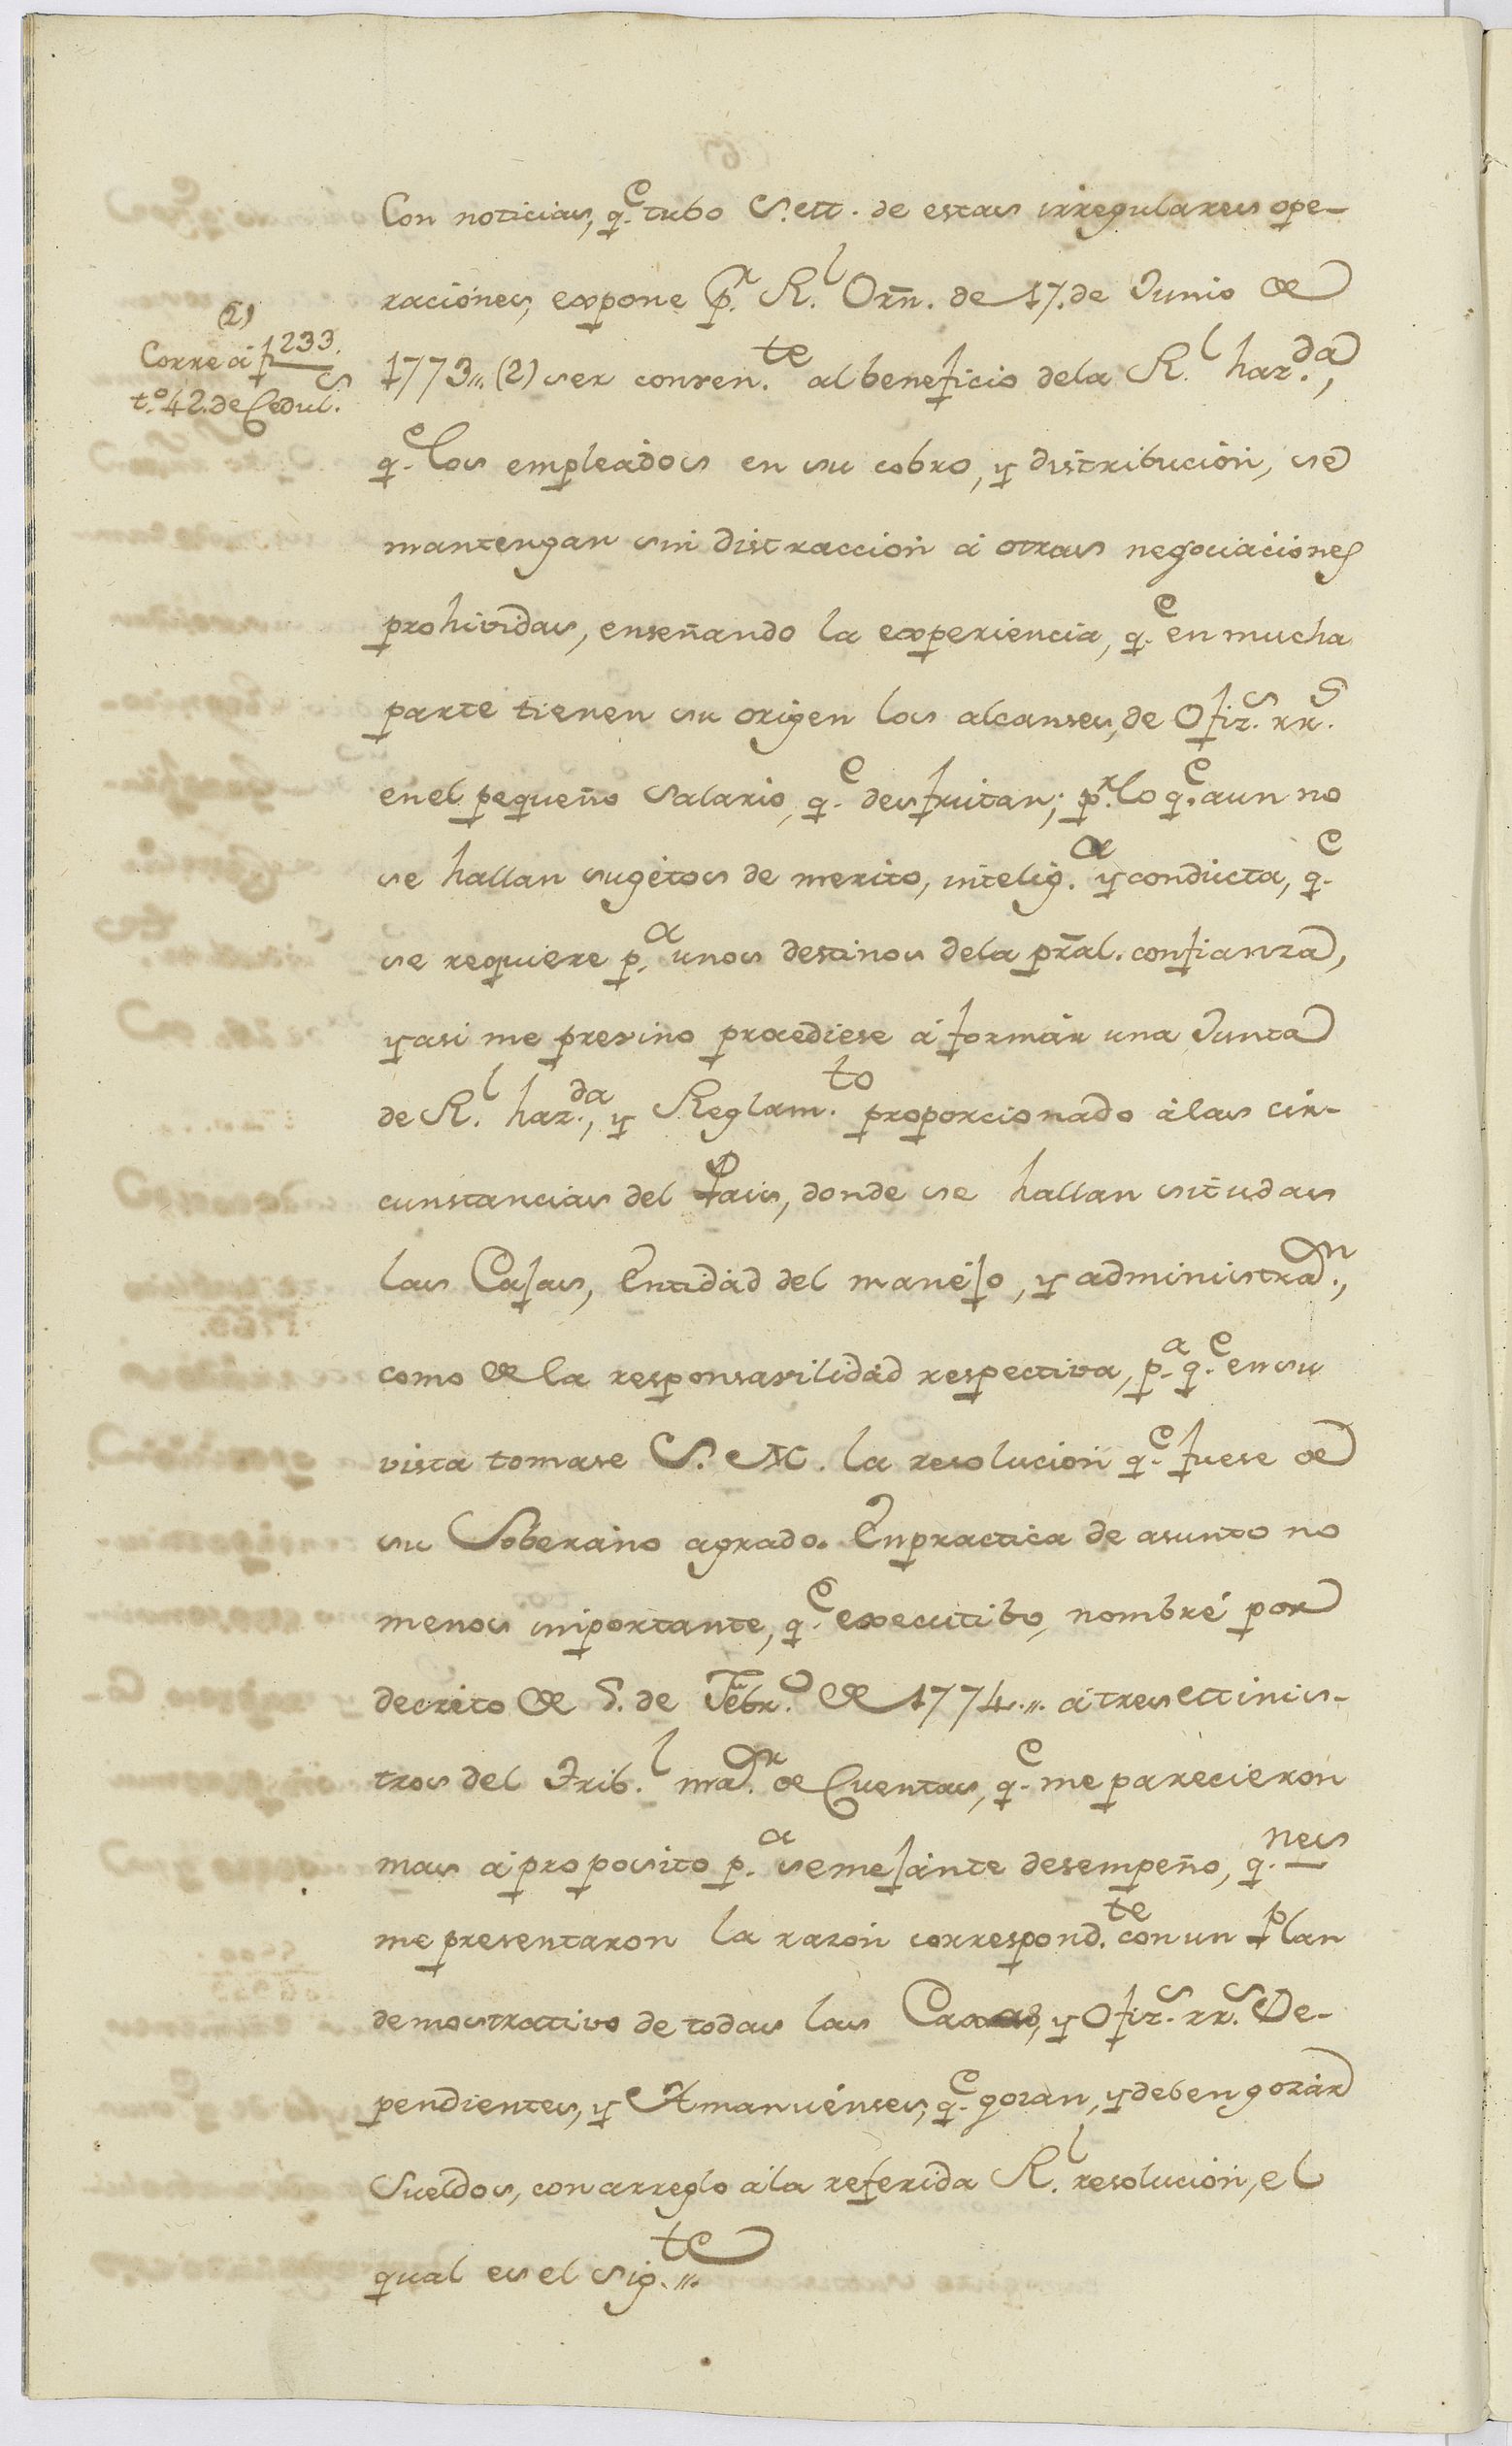 Con noticias, q.e tubo S. M. de estas irregulares ope-
raciones, expone p.r R.l Orn. de 17. de Junio de
(2)
Corre a f 233.
t.o 42. de Cedul.s
1773,,. (2) ser conven.te al beneficio dela R.l haz.da,
q.e los empleados en su cobro, y distribución, se
mantengan sin distraccion á otras negociaciones
prohividas, enseñando la experiencia, q.e en mucha
parte tienen su origen los alcanses, de Ofiz.s rr.s
en el pequeño salario, q.e desfrutan; p.r lo q.e aun no
se hallan sugetos de merito, intelig.a y conducta, q.e
se requiere p.a unos destinos dela pral. confianza,
y asi me previno procediese á formar una Junta
de R.l haz.da, y Reglam.to proporcionado álas cir-
cunstancias del Pais, donde se hallan situdas
las Cajas, Entidad del manejo, y administra.on,
como de la responsavilidad respectiva, p.a q.e en su
vista tomase S. M. la resolucion q.e fuese de
su Soberano agrado. En practica de asunto no
menos importante, q.e executibo, nombré por
decreto de 5. de Febr.o de 1774.,,. á tres Minis-
tros del Trib.l ma.or de Cuentas, q.e me parecieron
mas á proposito p.a semejante desempeño, q.nes
me presentaron la razon correspond.te con un Plan
demostrativo de todas las Caxas, y Ofiz.s rr.s De-
pendientes, y Amanuenses, q.e gozan, y deben gozar
Sueldos, con arreglo ála referida R.l resolucion, el
qual es el sig.te,,.